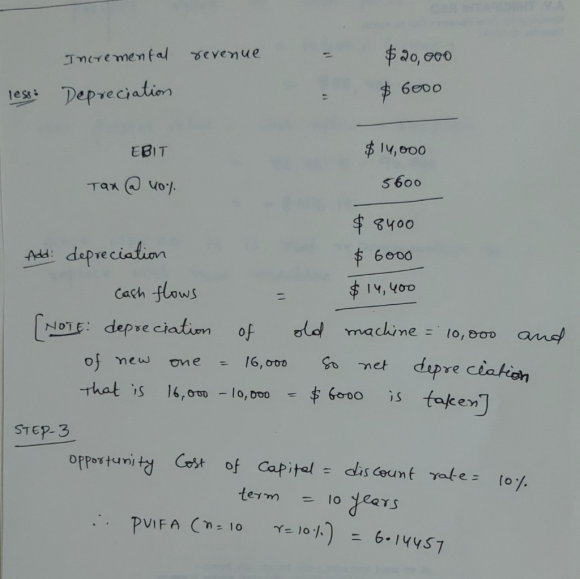 Incremental revenue = $20,000
less: Depreciation : $ 6000
EBIT $14,000
Tax @ 40%. 5600
$ 8400
Add: depreciation $ 6000
Cash flows = $14,400
[NOTE: depreciation of old machine = 10,000 and
of new one = 16,000 So net depreciation
that is 16,000 - 10,000 = $6000 is taken]
STEP-3
Opportunity Cost of Capital = discount rate = 10%.
term = 10 years
∴ PVIFA (n=10 r=10%.) = 6.14457